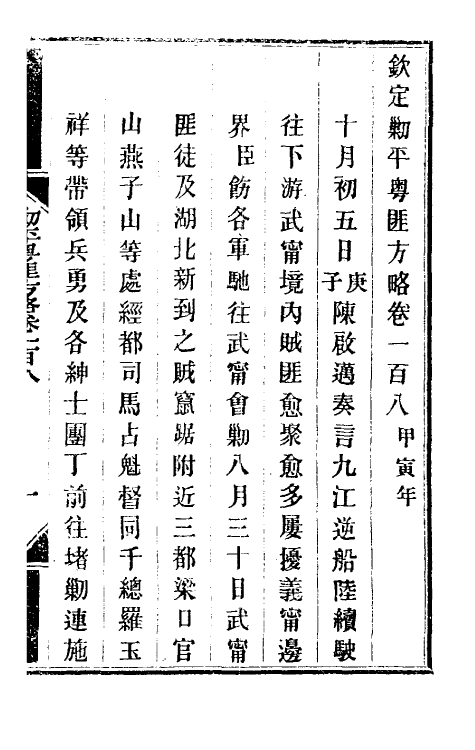 欽定勦平粵匪方略卷一百八甲寅年
十月初五日庚子陳啟邁奏言九江逆船陸續駛
往下游武甯境內賊匪愈聚愈多屢擾義甯邊
界臣飭各軍馳往武甯會勦八月三十日武甯
匪徒及湖北新到之賊竄踞附近三都梁口官
山燕子山等處經都司馬占魁督同千總羅玉
祥等帶領兵勇及各紳士團丁前往堵勦連施
勦平粵匪方略卷一百八
一